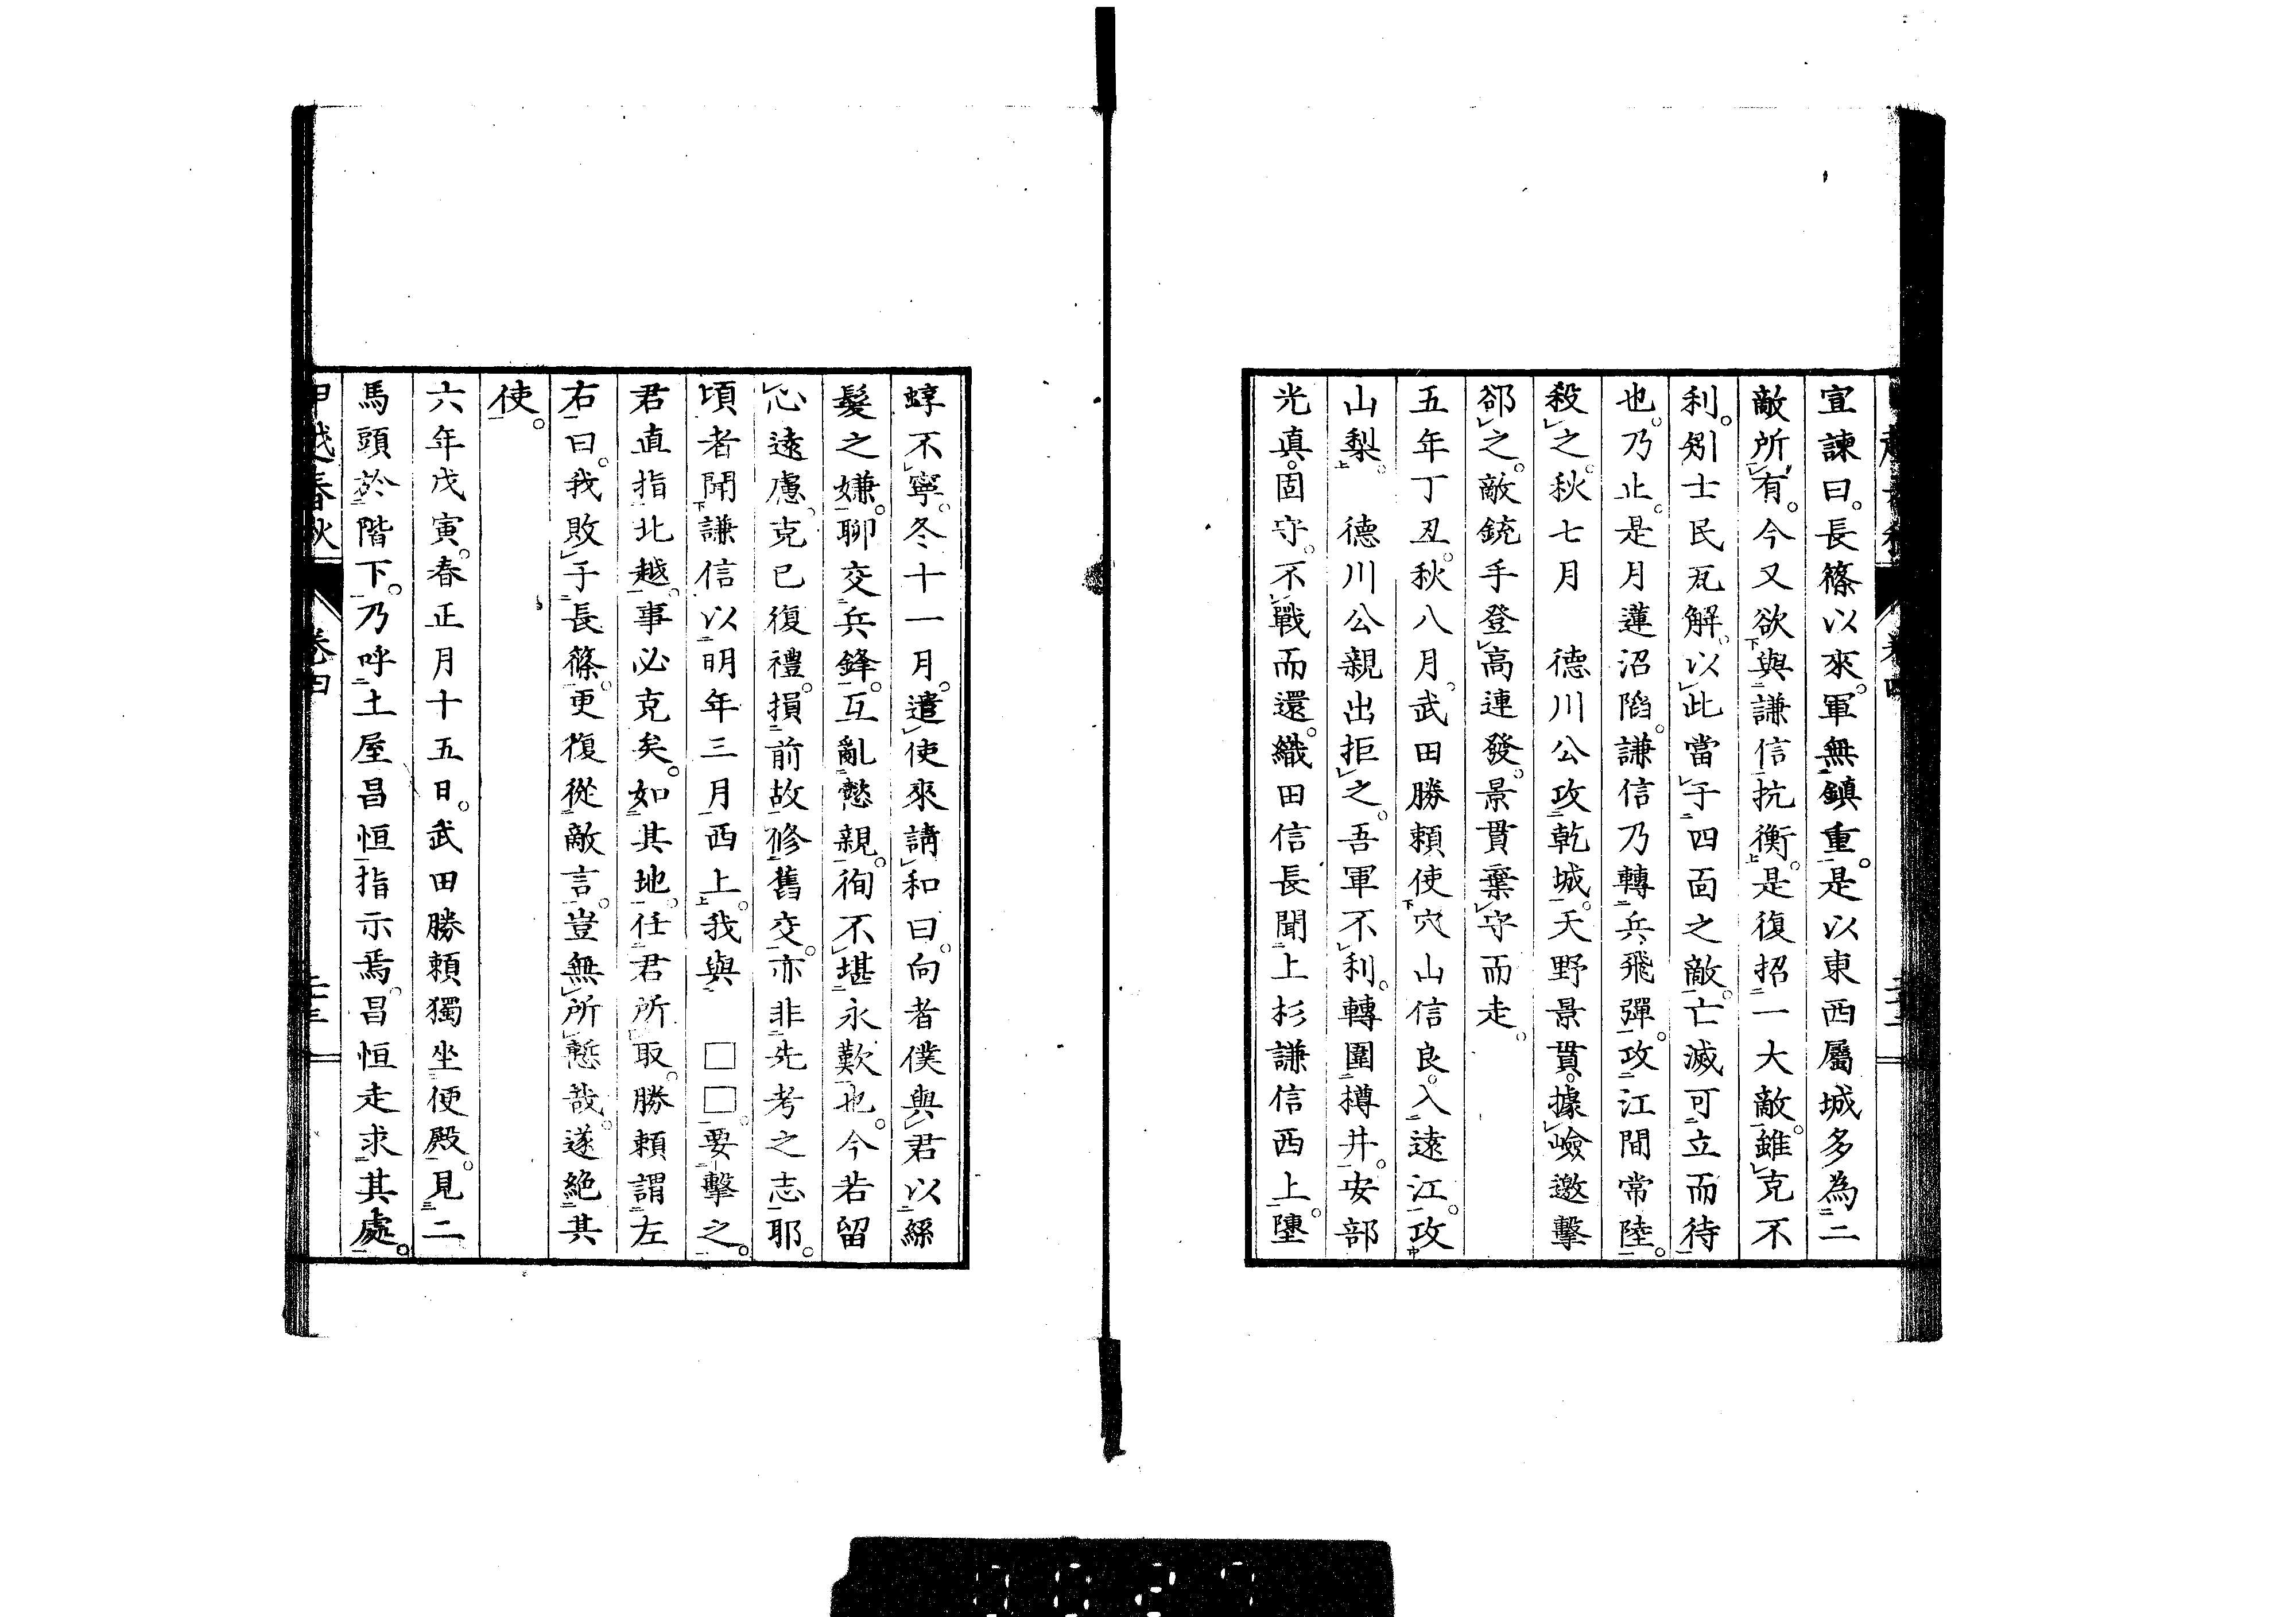 宣諫曰。長篠以來。軍無鎮重。是以東西屬城多為二
敵所有。今又欲與謙信抗衡。是復招一大敵。雖克不
利。矧士民瓦解。以此當于四面之敵。亡滅可立而待
也。乃止。是月蓮沼陷。謙信乃轉兵飛彈。攻江間常陸。
殺之。秋七月　德川公攻乾城。天野景貫。據嶮邀擊
郤之。敵銃手登高連發。景貫棄守而走。
五年丁丑。秋八月。武田勝賴使穴山信良。入遠江。攻
山梨。　德川公親出拒之。吾軍不利。轉圍樽井。安部
光真。固守。不戰而還。織田信長聞上杉謙信西上。隱
蜳不寧。冬十一月。遣使來請和曰。向者僕與君以絲
髮之嫌。聊交兵鋒。互亂懿親。徇不堪永歎也。今若留
心遠慮。克已復禮。損前故修舊交。亦非先考之志耶。
頃者聞謙信以明年三月西上。我與　□□。要擊之。
君直指北越。事必克矣。如其地。任君所取。勝賴謂左
右曰。我敗于長篠。更復從敵言。豈無所慙哉。遂絕其
使。
六年戊寅。春正月十五日。武田勝賴獨坐便殿。見二
馬頭於階下。乃呼土屋昌恒指示焉。昌恒走求其處。
甲越春秋　卷四　二十三